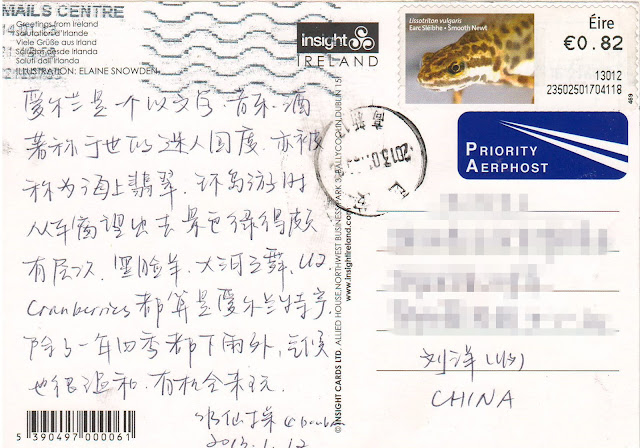 MAILS CENTRE
Greetings from Ireland
Salutation d'Irlande
Viele Grüße aus Irland
Saludos desde Irlanda
Saluti dall'Irlanda
ILLUSTRATION: ELAINE SNOWDEN
insight
IRELAND
Lissotriton vulgaris
Earc Sléibhe • Smooth Newt
Éire
€0.82
13012
23502501704118
469
PRIORITY
AERPHOST
爱尔兰是一个以文学、音乐、酒
著称于世的迷人国度,亦被
称为海上翡翠,环岛游时
从车窗望出去景色绿得颇
有层次,黑脸羊、大河之舞、U2
Cranberries都算是爱尔兰特产,
除了一年四季都下雨外,气候
也很温和,有机会来玩
水仙操
2013.1.12
刘洋(收)
CHINA
© INSIGHT CARDS LTD. ALLIED HOUSE, NORTHWEST BUSINESS PARK 3, BALLYCOOLIN, DUBLIN 15
www.insightireland.com
5 390497 000061